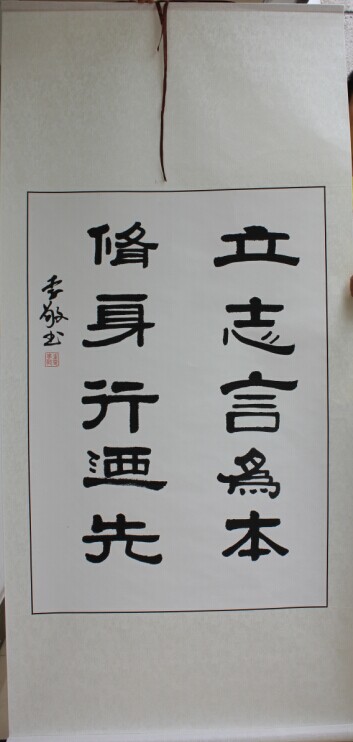 立志言為本
脩身行迺先
李敬书